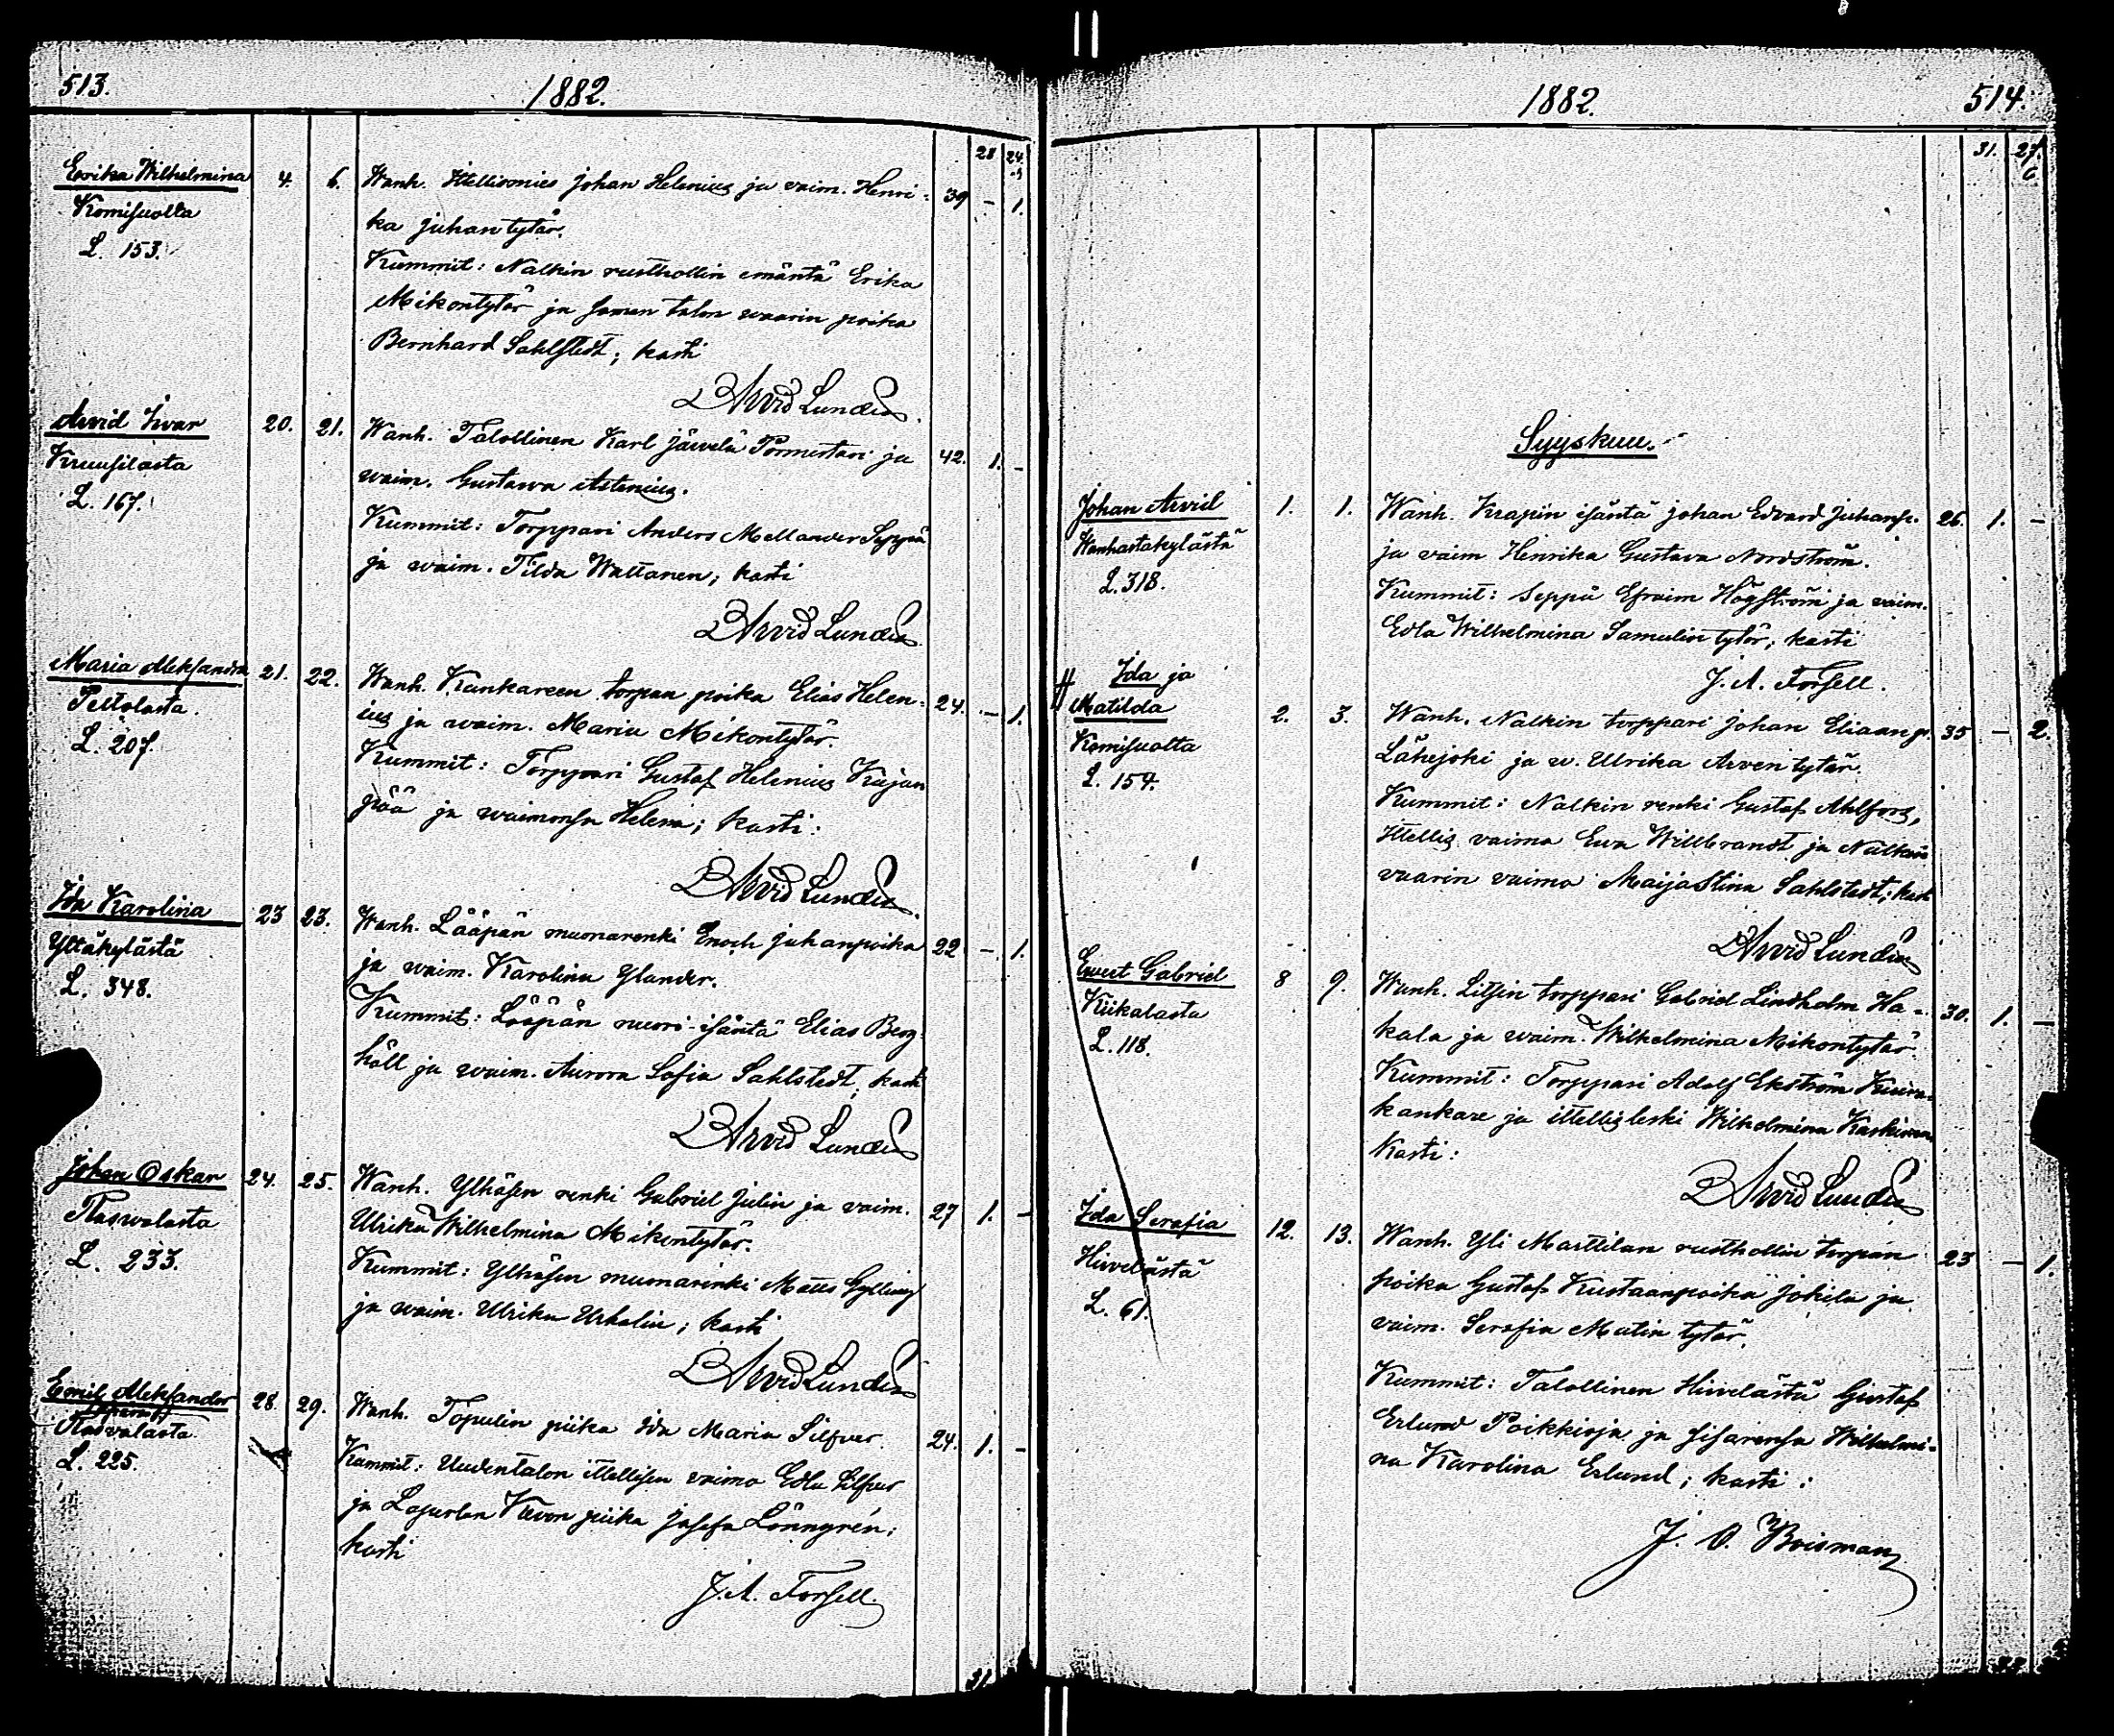 513.
1882.
28 24.
Erika Wilhelmina 4. 6. Wanh. Itellisenies Johan Helenius ja vaim. Henri- 39 - 1.
Komisuolta ka Juhantytär.
L. 153. Kummit: Nalkin rusthollin emäntä Erika
Mikontytär ja saman talon vaarin poika
Bernhard Sahlstedt; kasti
Arvid Lundén
Arvid Ivar 20. 21. Wanh. Talollinen Karl Järvelä Pormestari ja 42. 1. -
Kruusilasta waim. Gustawa Astenius.
L. 167. Kummit: Torppari Anders Mellander Seppä
ja waim. Tilda Wattanen; kasti
Arvid Lundén
Maria Aleksandra 21. 22. Wanh. Kankareen torpan poika Elias Helen- 24. - 1.
Peltolasta. ius ja waim. Maria Mikontytär.
L. 207. Kummit: Torppari Gustaf Helenius Kujan
pää ja waimonsa Helena; kasti:
Arvid Lundén
Ida Karolina 23 23. Wanh. Lääpän muonarenki Enoch Juhanpoika 22 - 1.
Yltäkylästä ja waim. Karolina Ylander.
L. 348. Kummit: Lääpän nuori-isäntä Elias Berg
häll ja waim. Aurora Sofia Sahlstedt, kasti
Arvid Lundén
Johan Oskar 24. 25. Wanh. Ylhäsen renki Gabriel Julin ja vaim. 27 1. -
Raswalasta Ulrika Wilhelmina Mikontytär.
L. 233. Kummit: Ylhäsen muonarenki Matts Gylling
ja waim. Ulrika Urhalin; kasti
Arvid Lundén
Emil Aleksander 28. 29. Wanh. Topulin piika Ida Maria Silfver 24. 1. -
Rasvalasta. Kummit: Uudentalon itellisen vaimo Edla Silfver
L. 225. ja Piika Josefa Lönngrén;
kasti
J. A. Forsell.
31.
1882.
514.
31. 27.
6
Syyskuu.
Johan Arvid 1. 1. Wanh. Krapin isäntä Johan Edvard Juhanp. 26. 1. -
Wanhastakylästä ja vaim Henrika Gustava Nordström.
L. 318. Kummit: Seppä Efraim Högström ja vaim.
Edla Wilhelmina Samulin tytär; kasti
J. A. Forsell.
Ida ja
Matilda 2. 3. Wanh. Nalkin torppari Johan Eliaanp. 35 - 2.
Komisuolta Lähejoki ja w. Ulrika Arventytär.
L. 154. Kummit: Nalkin renki Gustaf Ahlfors,
Itellis vaimo Ewa Willbrandt ja Nalkin
vaarin vaimo Maija Stina Sahlstedt; kasti
Arvid Lundén
Ewert Gabriel 8 9. Wanh. Litsin torppari Gabriel Lindholm Ha- 30. 1. -
Kiikalasta kala ja waim. Wilhelmina Mikontytär.
L. 118. Kummit: Torppari Adolf Ekström Kuiva-
kankare ja itellisleski Wilhelmina Kaskinen
Kasti:
Arvid Lundén
Ida Serafia 12. 13. Wanh. Yli Marttilan rusthollin torpan 23 - 1.
Hirvelästä poika Gustaf Kustaanpoika Jokila ja
L. 61. vaim. Serafia Matin tytär.
Kummit: Talollinen Hirvelästä Gustaf
Erlund Poikkioja ja sisarensa Wilhelmi-
na Karolina Erlund; kasti:
J. O. Boisman